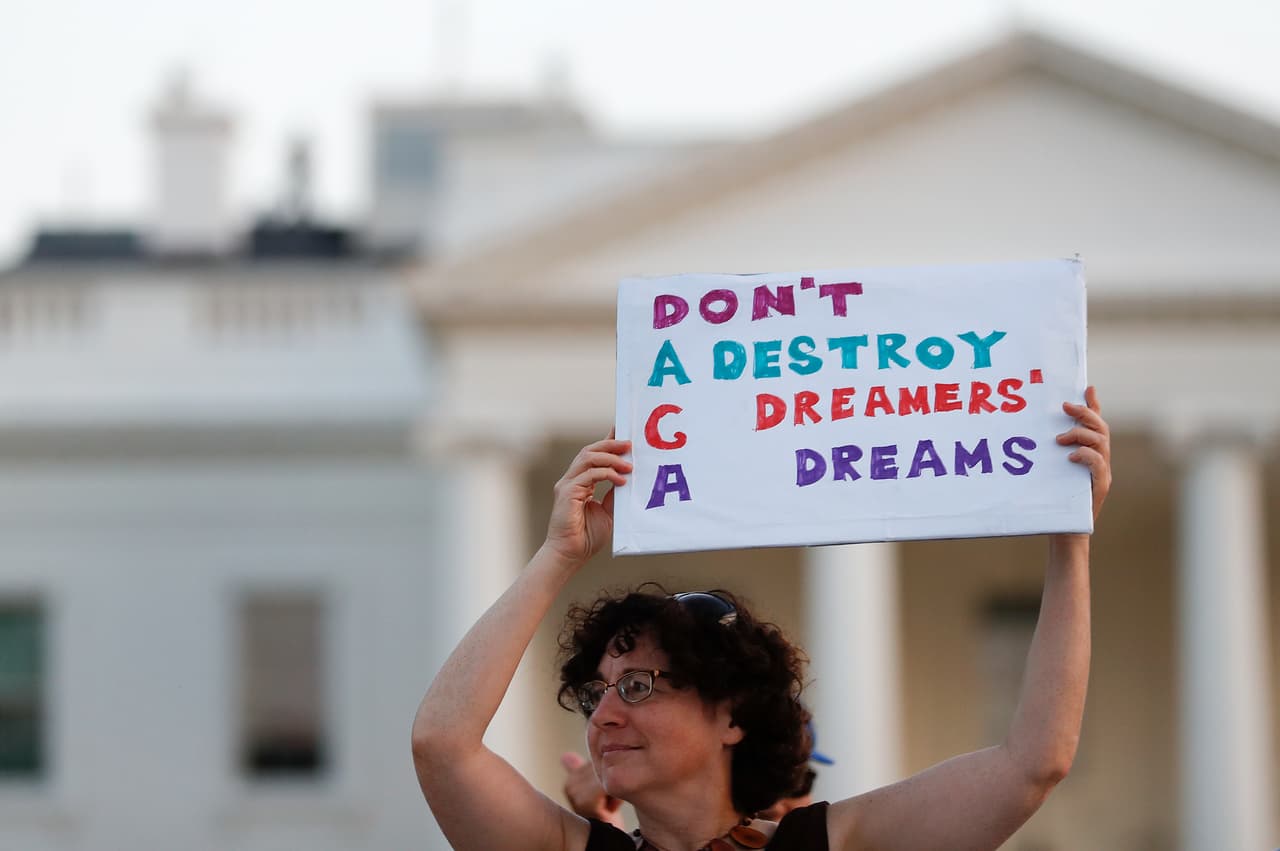 DON'T
A DESTROY
C DREAMERS'
A DREAMS